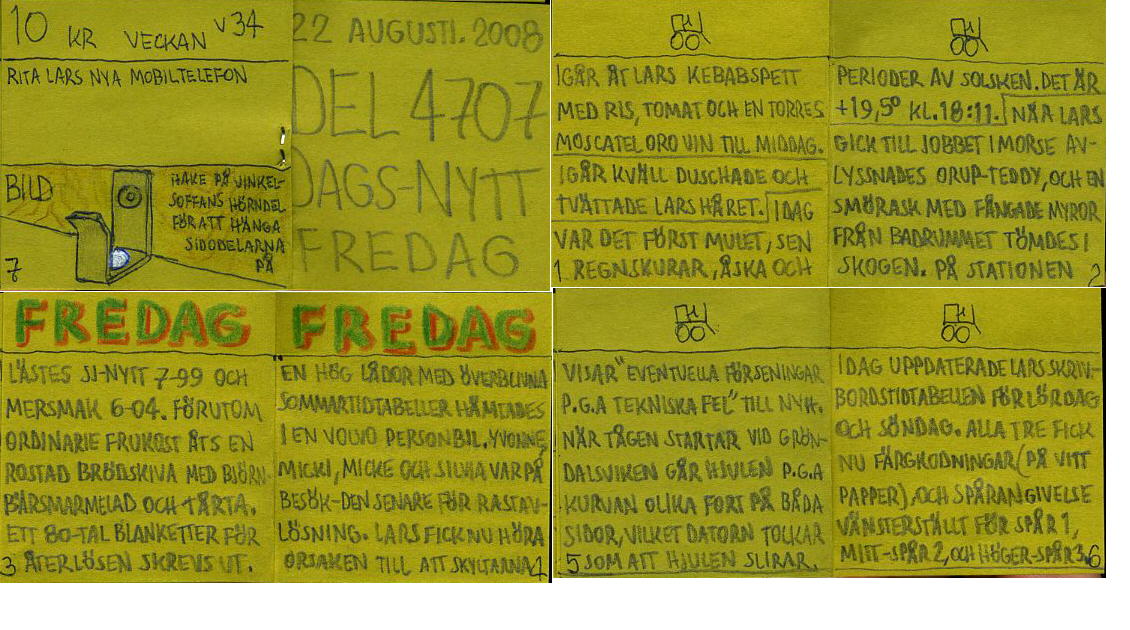 10 KR VECKAN V34
RITA LARS NYA MOBILTELEFON
BILD
HAKE PÅ VINKEL-
SOFFANS HÖRNDEL
FÖR ATT HÄNGA
SIDODELARNA
PÅ
7
22 AUGUSTI. 2008
DEL 4707
DAGS-NYTT
FREDAG
IGÅR ÅT LARS KEBABSPETT
MED RIS, TOMAT OCH EN TORRES
MOSCATEL ORO VIN TILL MIDDAG.
IGÅR KVÄLL DUSCHADE OCH
TVÄTTADE LARS HÅRET. IDAG
VAR DET FÖRST MULET, SEN
1 REGNSKURAR, ÅSKA OCH
PERIODER AV SOLSKEN. DET ÄR
+19,5° KL.18:11. NÄR LARS
GICK TILL JOBBET IMORSE AV-
LYSSNADES ORUP-TEDDY, OCH EN
SMÖRASK MED FÅNGADE MYROR
FRÅN BADRUMMET TÖMDES I
SKOGEN. PÅ STATIONEN 2
FREDAG
LÄSTES SJ-NYTT 7-99 OCH
MERSMAK 6-04. FÖRUTOM
ORDINARIE FRUKOST ÅTS EN
ROSTAD BRÖDSKIVA MED BJÖRN-
BÄRSMARMELAD OCH TÅRTA.
ETT 80-TAL BLANKETTER FÖR
3 ÅTERLÖSEN SKREVS UT.
FREDAG
EN HÖG LÅDOR MED ÖVERBLIVNA
SOMMARTIDTABELLER HÄMTADES
I EN VOLVO PERSONBIL. YVONNE,
MICKI, MICKE OCH SILVIA VAR PÅ
BESÖK-DEN SENARE FÖR RASTAV-
LÖSNING. LARS FICK NU HÖRA
ORSAKEN TILL ATT SKYLTARNA 4
VISAR "EVENTUELLA FÖRSENINGAR
P.G.A TEKNISKA FEL" TILL NYH.
NÄR TÅGEN STARTAR VID GRÖN-
DALSVIKEN GÅR HJULEN P.G.A
KURVAN OLIKA FORT PÅ BÅDA
SIDOR, VILKET DATORN TOLKAR
5 SOM ATT HJULEN SLIRAR.
IDAG UPPDATERADE LARS SKRIV-
BORDSTIDTABELLEN FÖR LÖRDAG
OCH SÖNDAG. ALLA TRE FICK
NU FÄRGKODNINGAR (PÅ VITT
PAPPER), OCH SPÅRANGIVELSE
VÄNSTERSTÄLLT FÖR SPÅR 1,
MITT-SPÅR 2, OCH HÖGER-SPÅR 3. 6